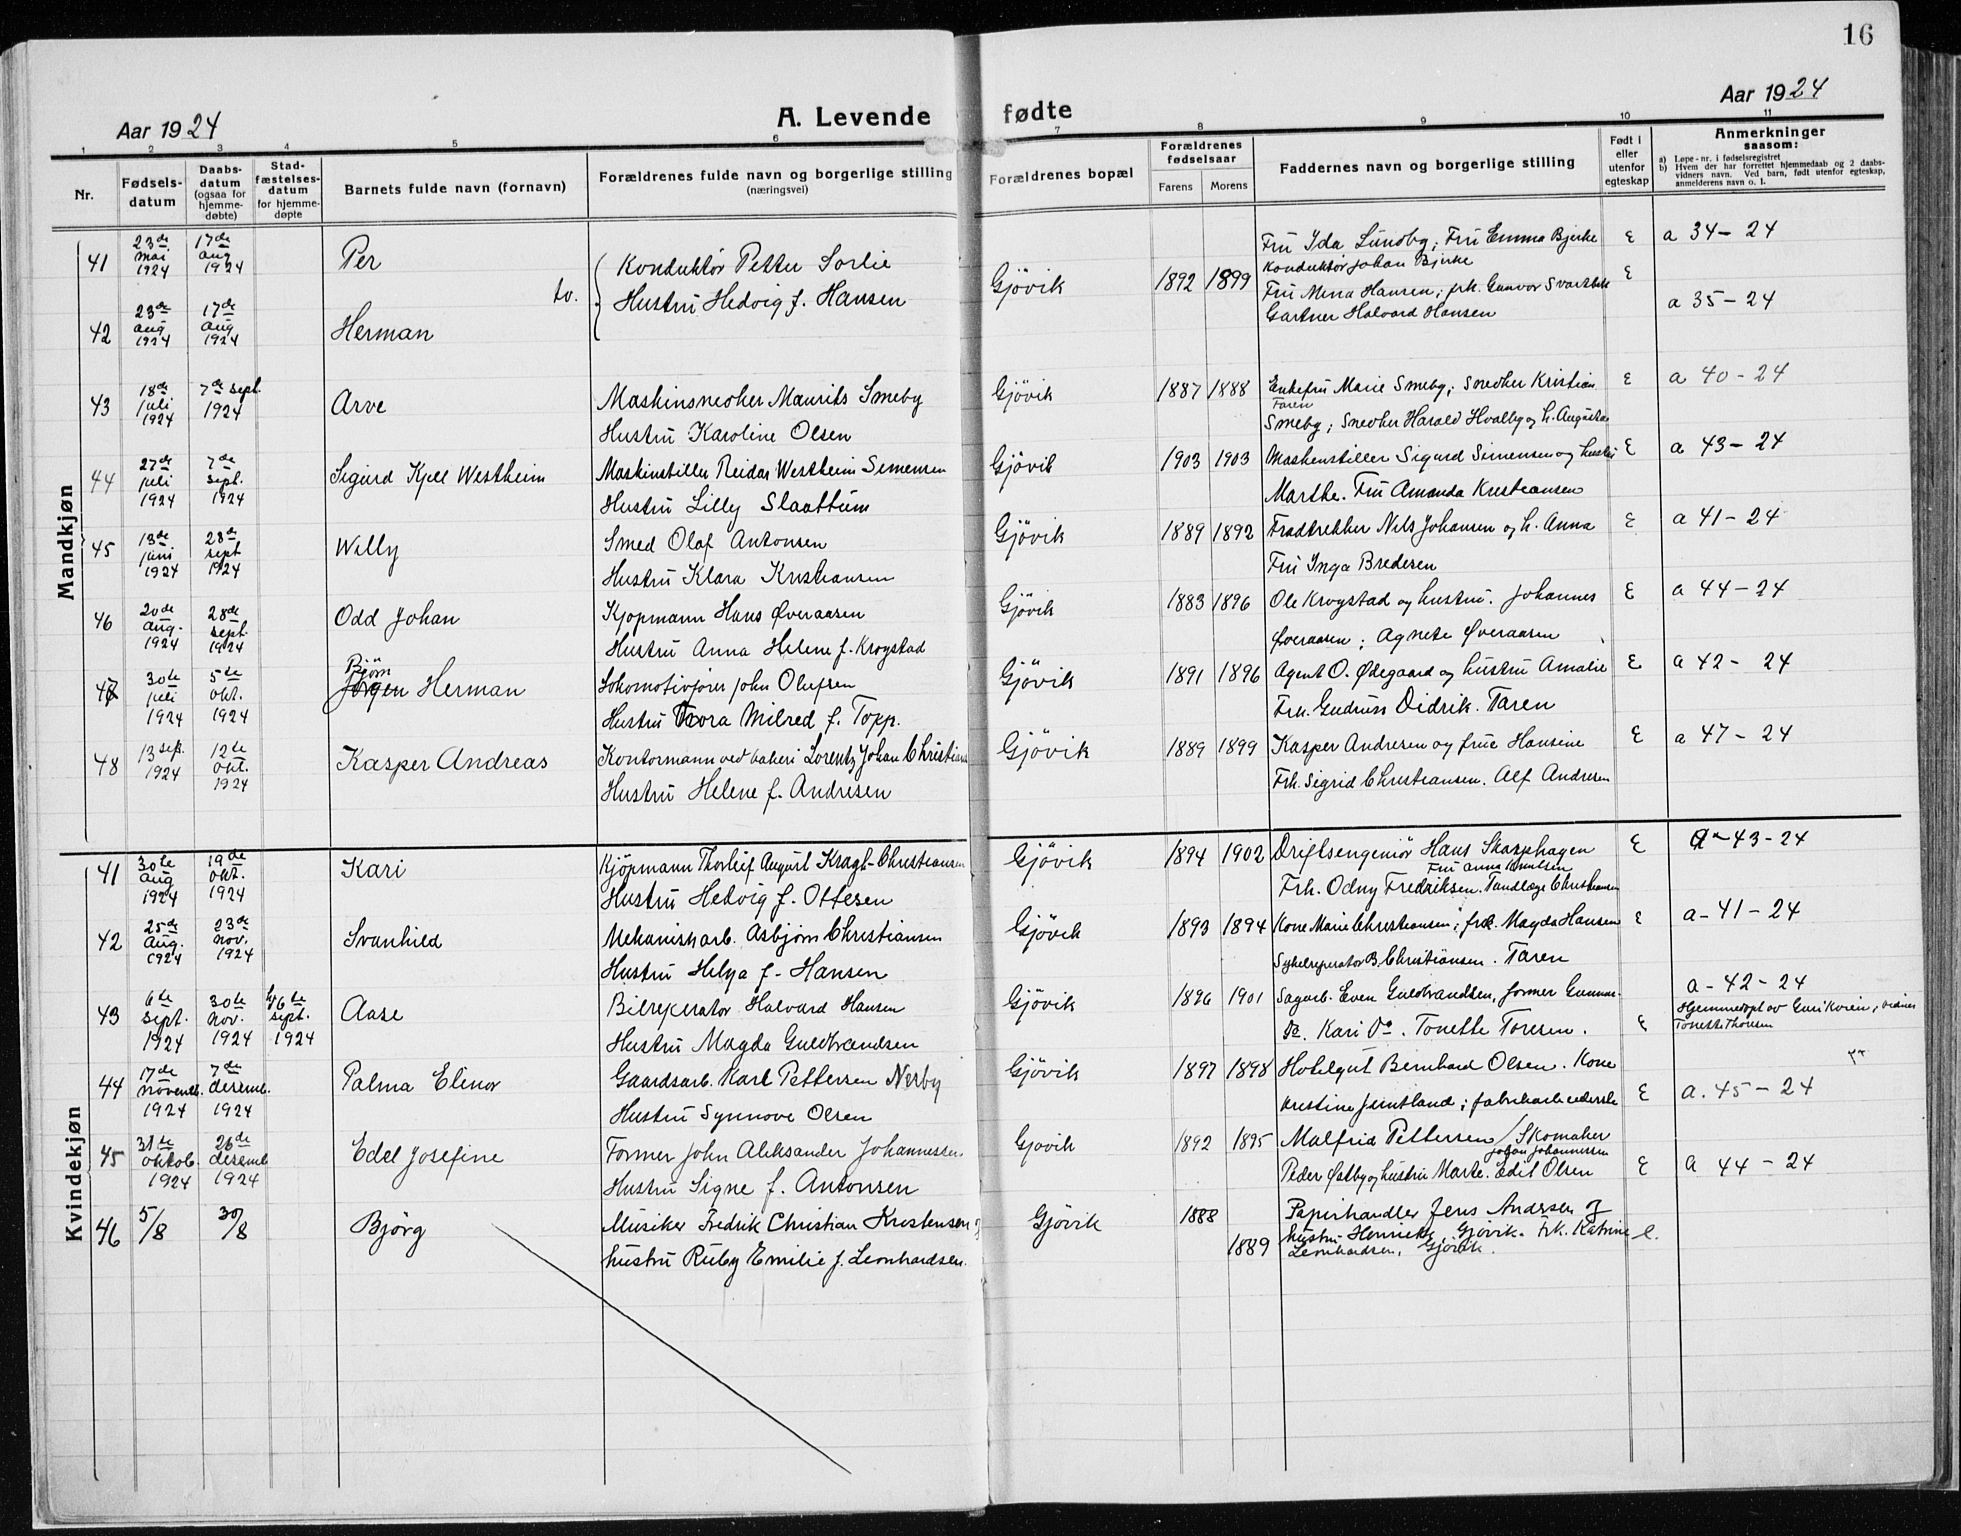 16
Aar 1924
A. Levende fødte
Aar 1924
1 2 3 4 5 6 7 8 9 10 11
Nr.
Fødsels-
datum
Daabs-
datum
(ogsaa for
hjemme-
døbte)
Stad-
fæstelses-
datum
for hjemme-
døpte
Barnets fulde navn (fornavn)
Forældrenes fulde navn og borgerlige stilling
(næringsvei)
Forældrenes bopæl
Forældrenes
fødselsaar
Farens Morens
Faddernes navn og borgerlige stilling
Født i
eller
utenfor
egteskap
Anmerkninger
saasom:
a) Løpe-nr. i fødselsregistret
b) Hvem der har forrettet hjemmedaab og 2 daabs-
vidners navn. Ved barn, født utenfor egteskap,
anmelderens navn o. l.
Mandkjøn
41 23de mai 1924 17de aug 1924 Per tv. Konduktör Petter Sorlie
Hustru Hedvig f. Hansen
Gjövik 1892 1899
Fru Ida Lundby; Fru Emma Bjerke E a 34-24
Konduktör Johan Bjerke
42 23de aug 1924 17de aug 1924 Herman
Fru Mina Hansen; frk. Gunvor E a 35-24
Gartner Halvard Hansen
43 18de juli 1924 7de sept. 1924 Arve Maskinsnedker Maurits Smeby
Hustru Karoline Olsen
Gjövik 1887 1888 Enkefru Marie Smeby; Snedker Kristian E a 40-24
Faren
Smeby; Snedker Harald Hvalby og h. Augusta
44 27de juli 1924 7de sept. 1924 Sigurd Kjell Westheim Maskinstiller Reidar Westheim Simensen
Hustru Lilly Slaattum
Gjövik 1903 1903 Maskinstiller Sigurd Simensen og hustru E a 43-24
Marthe. Fru Amanda Kristiansen
45 13de juni 1924 28de sept 1924 Willy Smed Olaf Antonsen
Hustru Klara Kristiansen
Gjövik 1889 1892 Traadtrekker Nils Johansen og h. Anna E a 41-24
Fru Inga Bredesen
46 20de aug. 1924 28de sept. 1924 Odd Johan Kjopmann Hans Øveraasen
Hustru Anna Helene f. Krogstad
Gjövik 1883 1896 Ole Krogstad og hustru. Johannes E a 44-24
Øveraasen; Agnete Øveraasen
47 30te juli 1924 5te okt. 1924 Björn
Jörgen Herman Lokomotivfører John Olufsen
Hustru Thora Milred f. Topp.
Gjövik 1891 1896 Agent O. Ødegaard og hustru Amalie E a 42-24
Frk. Gudrun Didrik. Faren
48 13 sept. 1924 12te okt. 1924 Kasper Andreas Kontormann ved bakeri Lorentz Johan Christians
Hustru Helene f. Andresen
Gjövik 1889 1899 Kasper Andresen og frue Hansine E a 47-24
Frk. Sigrid Christiansen. Alf Andresen
Kvindekjøn
41 30te aug 1924 19de okt. 1924 Kari Kjöpmann Thorleif August Kragh-Christiansen
Hustru Hedvig f. Ottesen
Gjövik 1894 1902 Driftsengeniör Hans Skasphagen E a-43-24
Fru Anna Knutsen
Frk. Odny Fredriksen. Tandlæge Christiansen
42 25de aug. 1924 23de nov. 1924 Svanhild Mekanisk arb. Asbjørn Christiansen
Hustru Helga f. Hansen
Gjövik 1893 1894 Kone Marie Christiansen; frk. Magda Hansen E a-41-24
Sykelreperatør B. Christiansen. Faren
43 6te sept. 1924 30te nov. 1924 6te sept. 1924 Aase Bilreperator Halvard Hansen
Hustru Magda Guldbrandsen
Gjövik 1896 1901 Sagarb. Even Guldbrandsen, former Gunnar a-42-24
Do. Kari Do. Tonette Toresen. E Hjemmedöpt av Guri Kvien, vidner
Tonette Thorsen
44 17de novemb. 1924 7de desemb. 1924 Palma Elinor Gaardsarb. Karl Pettersen Nerby
Hustru Synnove Olsen
Gjövik 1897 1898 Hotelgut Bernhard Olsen. Kone
Kristine; fabrikarbeiderske E a. 45-24
45 31te oktob. 1924 26de desemb 1924 Edel Josefine Former John Aleksander Johannessen
Hustru Signe f. Antonsen
Gjovik 1892 1895 Malfrid Pettersen / Skomaker
Johan Johannessen
Peder Østby og hustru Marte. Edit Olsen E a 44-24
46 5/8 30/8 Bjørg Musiker Fredrik Christian Kristensen og
hustru Ruby Emilie f. Leonhardsen.
Gjövik 1888 1889 Papirhandler Jens Andersen og
hustru Henrikke, Gjövik. Frk. Katrine e.
Leonhardsen, Gjövik.